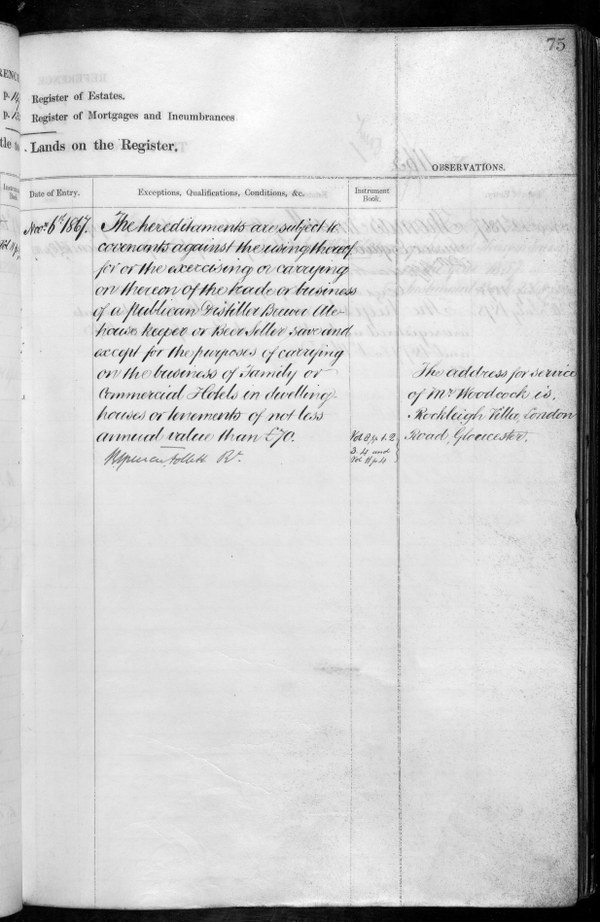 75
Register of Estates.
Register of Mortgages and Incumbrances
Lands on the Register.
OBSERVATIONS.
Date of Entry.
Exceptions, Qualifications, Conditions, &c.
Instrument
Book.
Novr. 6th 1867.
The hereditaments are subject to
covenants against the using thereof
for or the exercising or carrying
on thereon of the trade or business
of a Publican Distiller Brewer Ale-
house keeper or Beer Seller save and
except for the purposes of carrying
on the business of Family or
Commercial Hotels in dwelling
houses or tenements of not less
annual value than £70.
Vol 2 p. 1. 2
3. 4 and
Vol 11 p 4
The address for service
of Mr Woodcock is,
Rockleigh Villa, London
Road, Gloucester.